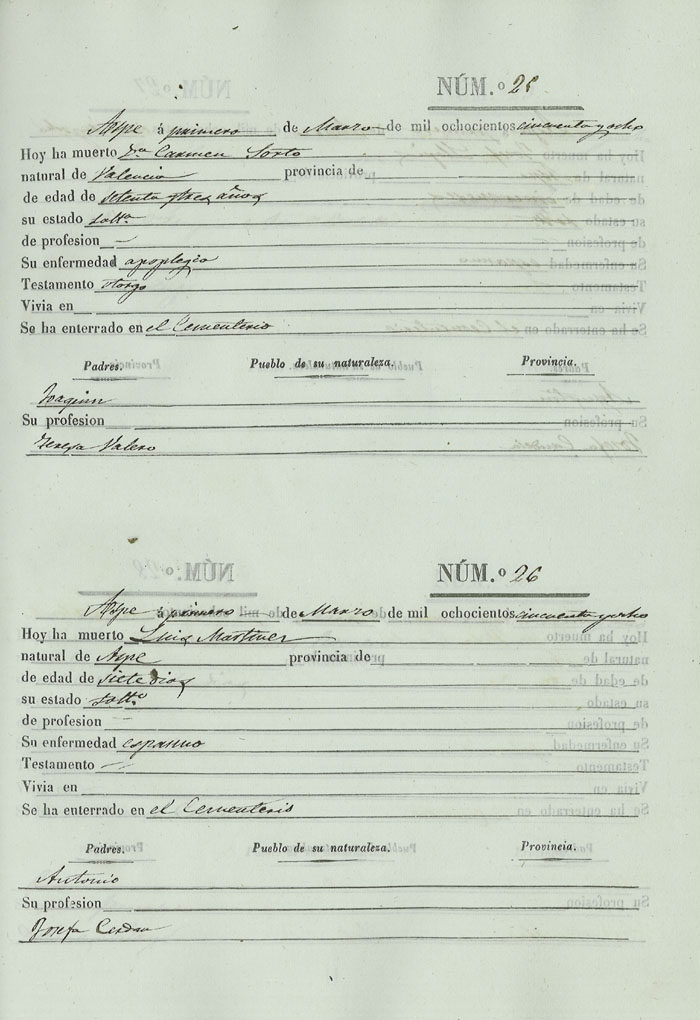 NÚM.º 25
Aspe á primero de Marzo de mil ochocientos cincuenta y ocho
Hoy ha muerto Dª Carmen Sorto
natural de Valencia provincia de
de edad de setenta y tres años
su estado soltª
de profesion —
Su enfermedad apoplegia
Testamento otorgo
Vivia en
Se ha enterrado en el Cementerio
Padres. Pueblo de su naturaleza. Provincia.
Joaquin
Su profesion
Teresa Valero
NÚM.º 26
Aspe á primero de Marzo de mil ochocientos cincuenta y ocho
Hoy ha muerto Luis Martinez
natural de Aspe provincia de
de edad de siete dias
su estado soltº
de profesion —
Su enfermedad espasmo
Testamento —
Vivia en
Se ha enterrado en el Cementerio
Padres. Pueblo de su naturaleza. Provincia.
Antonio
Su profesion
Josefa Cerdan